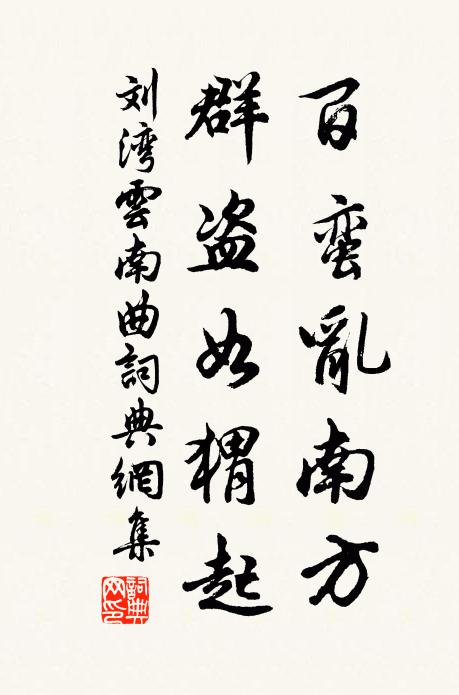 百蛮亂南方
群盗如猬起
刘湾雲南曲詞典網集
詞典网印